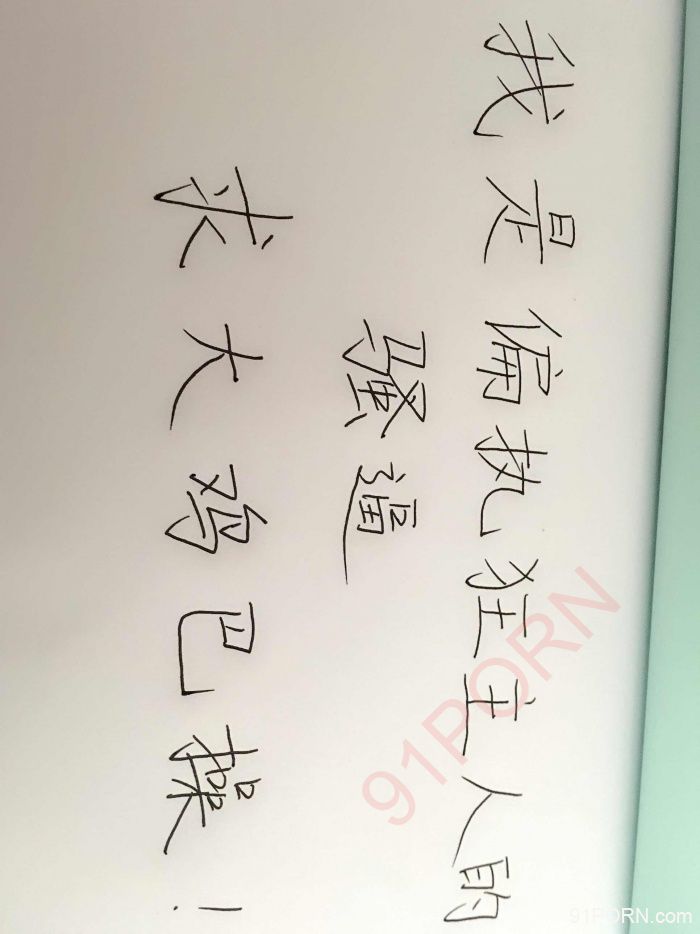 我是偏执狂主人的
骚逼
求大鸡巴操！
91PORN
91PORN.com